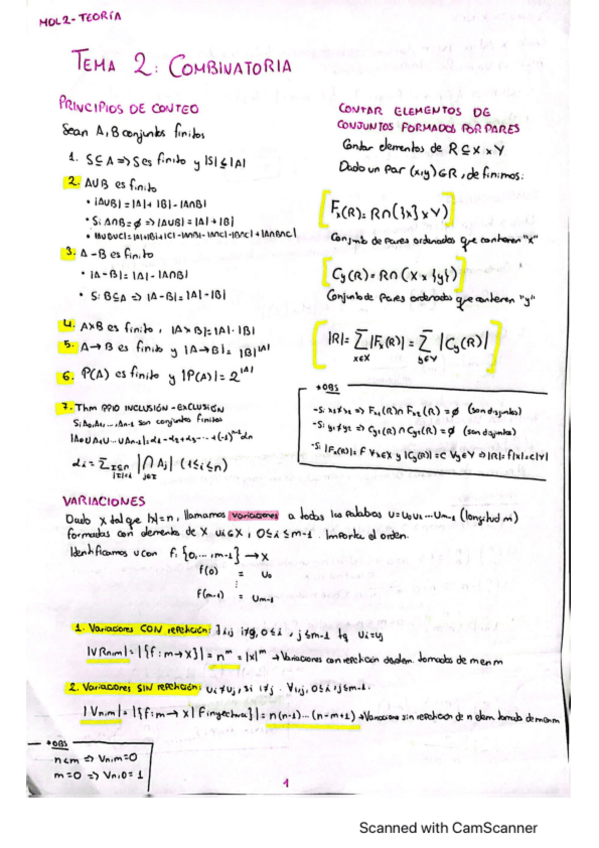 MDL2-TEORÍA
TEMA 2: COMBINATORIA
PRINCIPIOS DE CONTEO
Sean A, B conjuntos finitos
1. S⊆A ⇒ S es finito y |S|≤|A|
2. A∪B es finito
• |A∪B| = |A| + |B| - |A∩B|
• Si A∩B=∅ ⇒ |A∪B| = |A| + |B|
• |A∪B∪C| = |A|+|B|+|C|-|A∩B|-|A∩C|-|B∩C|+|A∩B∩C|
3. A-B es finito
• |A-B| = |A| - |A∩B|
• Si B⊆A ⇒ |A-B| = |A|-|B|
4. A×B es finito, |A×B| = |A|·|B|
5. A→B es finito y |A→B| = |B|^|A|
6. P(A) es finito y |P(A)| = 2^|A|
7. Thm PPIO INCLUSIÓN-EXCLUSIÓN
Si A₀, A₁, ..., An-1 son conjuntos finitos
|A₀∪A₁∪...∪An-1| = α₁-α₂+α₃-...+(-1)ⁿ⁻¹αn
αi = Σ I⊆n |I|=i |⋂ j∈I Aj| (1≤i≤n)
CONTAR ELEMENTOS DE
CONJUNTOS FORMADOS POR PARES
Contar elementos de R⊆X×Y
Dado un par (x,y)∈R, definimos:
Fx(R) = R∩({x}×Y)
Conjunto de pares ordenados que contienen "x"
Cy(R) = R∩(X×{y})
Conjunto de pares ordenados que contienen "y"
|R| = Σ x∈X |Fx(R)| = Σ y∈Y |Cy(R)|
*OBS
-Si x₁≠x₂ ⇒ Fx₁(R)∩Fx₂(R)=∅ (son disjuntos)
-Si y₁≠y₂ ⇒ Cy₁(R)∩Cy₂(R)=∅ (son disjuntos)
-Si |Fx(R)|=F ∀x∈X y |Cy(R)|=C ∀y∈Y ⇒ |R|=F|X|=C|Y|
VARIACIONES
Dado X tal que |X|=n, llamamos variaciones a todas las palabras u=u₀u₁...um-1 (longitud m)
formadas con elementos de X ui∈X, 0≤i≤m-1. Importa el orden.
Identificamos u con f: {0,...,m-1} → X
f(0) = u₀
⋮
f(m-1) = um-1
1. Variaciones CON repetición: ∃i,j i≠j, 0≤i, j≤m-1 tq ui=uj
|VRn,m| = |{f: m→X}| = nᵐ = |X|ᵐ → Variaciones con repetición de n elem. tomados de m en m
2. Variaciones SIN repetición: ui≠uj, si i≠j. ∀i,j, 0≤i,j≤m-1.
|Vn,m| = |{f: m→X | F inyectiva}| = n(n-1)...(n-m+1) → Variaciones sin repetición de n elem. tomados de m en m
*OBS
n<m ⇒ Vn,m=0
m=0 ⇒ Vn,0=1
1
Scanned with CamScanner